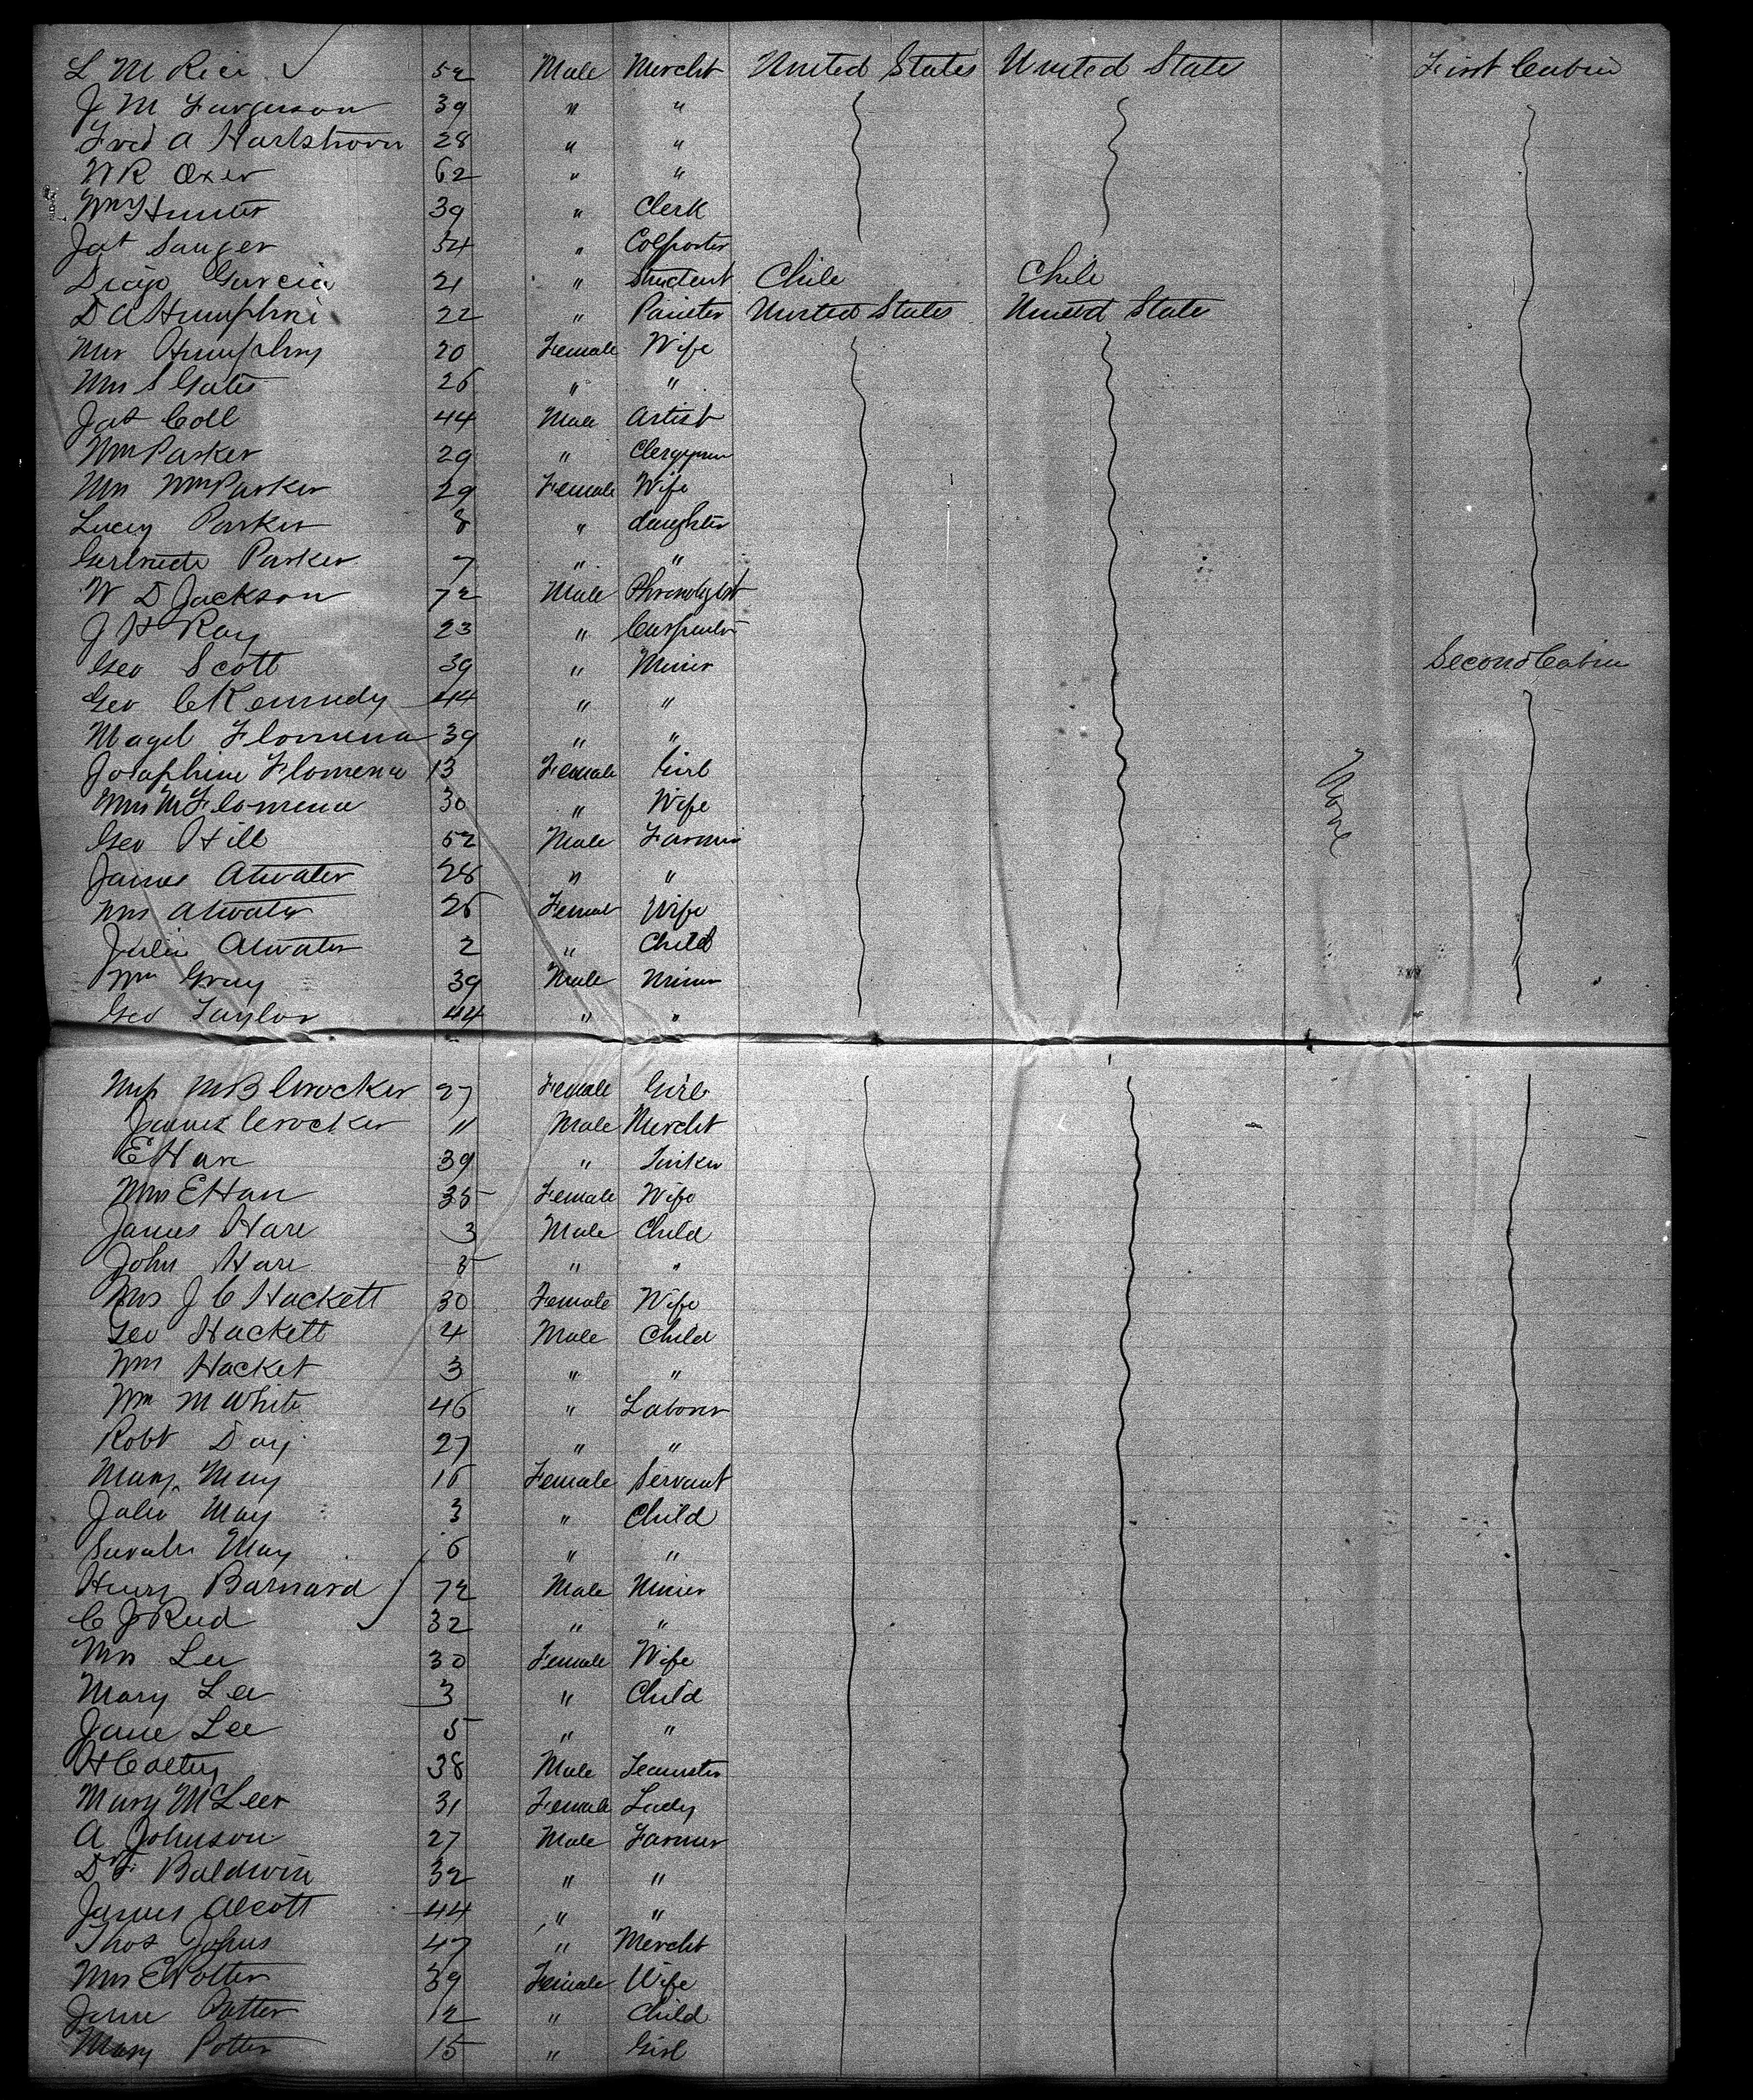 L M Rice 52 Male Mercht United States United State First Cabin
J M Furguson 39 " "
Fred A Hartshorn 28 " "
W R Oxer 62 " "
Wm Hunter 39 " Clerk
Jat Sanger 54 " Colporter
Diego Garcia 21 " Student Chile Chile
D A Humphri 22 " Painter United States United State
Mrs Humphry 20 Female Wife
Mrs S Gates 26 " "
Jat Coll 44 Male Artist
Wm Parker 29 " Clergyman
Mrs Wm Parker 29 Female Wife
Lucy Parker 8 " daughter
Gertrude Parker 7 " "
W D Jackson 72 Male
J H Ray 23 " Carpenter
Geo Scott 39 " Miner Second Cabin
Geo C Kennedy 44 " "
Magel Flomena 39 " "
Josaphine Flomena 13 Female Girl
Mrs M Flomena 30 " Wife None
Geo Hill 52 Male Farmer
James Atwater 28 " "
Mrs Atwater 25 Female Wife
Julia Atwater 2 " Child
Wm Gray 39 Male Miner
Geo Taylor 44 " "
M B Crocker 27 Female Girl
James Crocker 11 Male Mercht
E Hare 39 "
Mrs E Hare 35 Female Wife
James Hare 3 Male Child
John Hare 5 " "
Mrs J C Hackett 30 Female Wife
Geo Hackett 4 Male Child
Wm Hacket 3 " "
Wm M White 46 " Laborer
Robt Day 27 " "
Mary May 16 Female Servant
Julia May 3 " Child
Sarah May 6 " "
Henry Barnard 72 Male Miner
C J Reed 32 " "
Mrs Lee 30 Female Wife
Mary Lee 3 " Child
Jane Lee 5 " "
H 38 Male Teamster
Mary McLeer 31 Female Lady
A Johnson 27 Male Farmer
D F Baldwin 32 " "
James Alcott 44 " "
Thos Johns 47 " Mercht
Mrs E Potter 39 Female Wife
Jane Potter 12 " Child
Mary Potter 15 " Girl